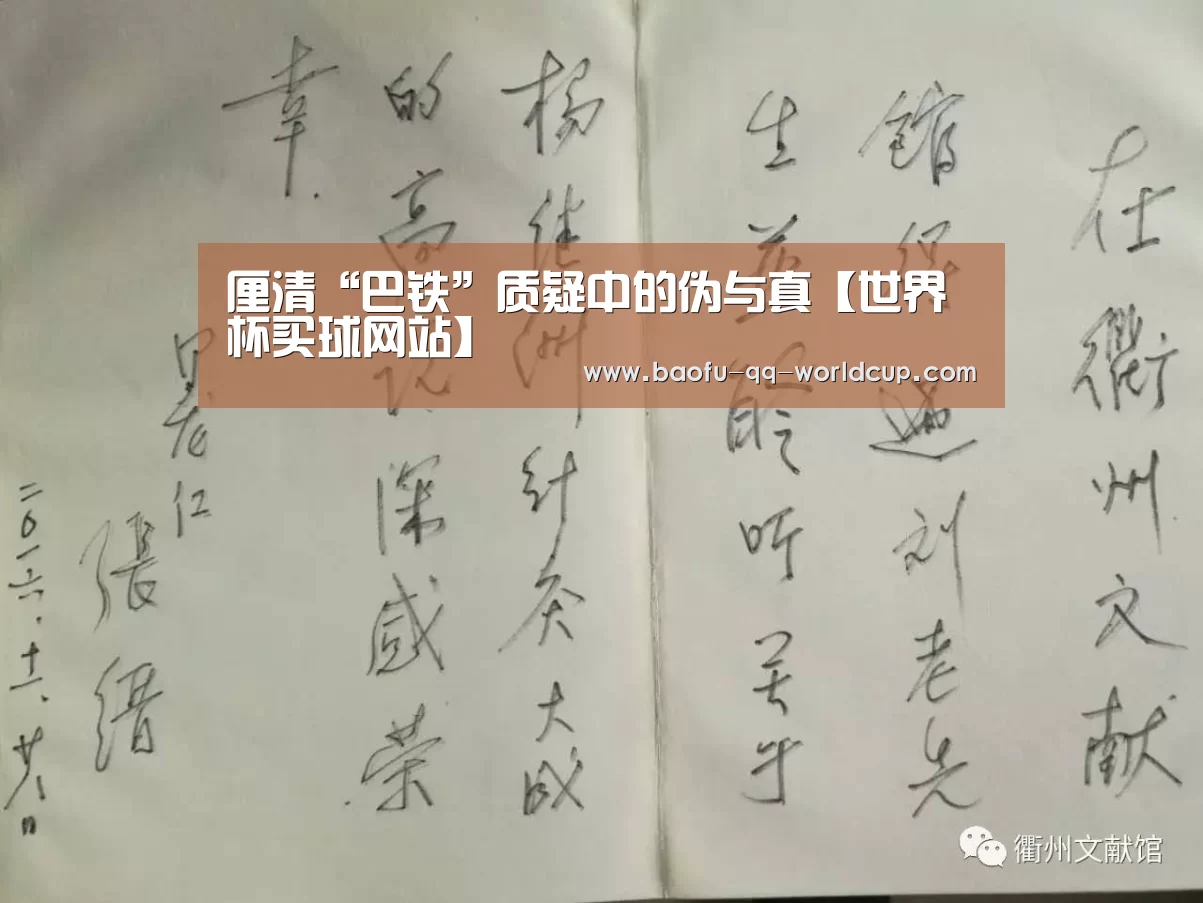 在衢州文献
馆得遇刘老先
生并聆听关于
杨继洲针灸大成
的高论深感荣
幸.
晨仁
張缙
二〇一六.十一.廿八日
厘清“巴铁”质疑中的伪与真【世界
杯买球网站】
www.baofu-qq-worldcup.com
衢州文献馆